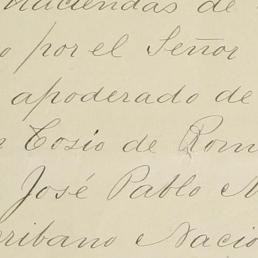 haciendas de
por el Señor
apoderado de
Cosio de Rom
José Pablo M
cribano Nacio